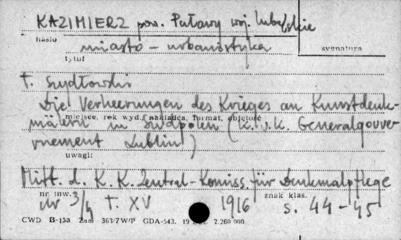 KAZIMIERZ pow. Puławy woj. lubelskie
hasło
miasto - urbanistyka
sygnatura
tytuł
T. Szydłowski
Die Verheerungen des Krieges an Kunstdenk-
miejsce, rok wyd., nakładca, format, objętość
mälern in Südpolen (K.u.K. Generalgouver-
nement Lublin)
uwagi:
Mitt. d. K. K. Zentral-Komiss. für Denkmalpflege
nr. inw.
znak klas.
Nr 3/4 t. XV 1916 s. 44-45
CWD B-153 Zam 363/7W/P GDA-543. 2.260.000.